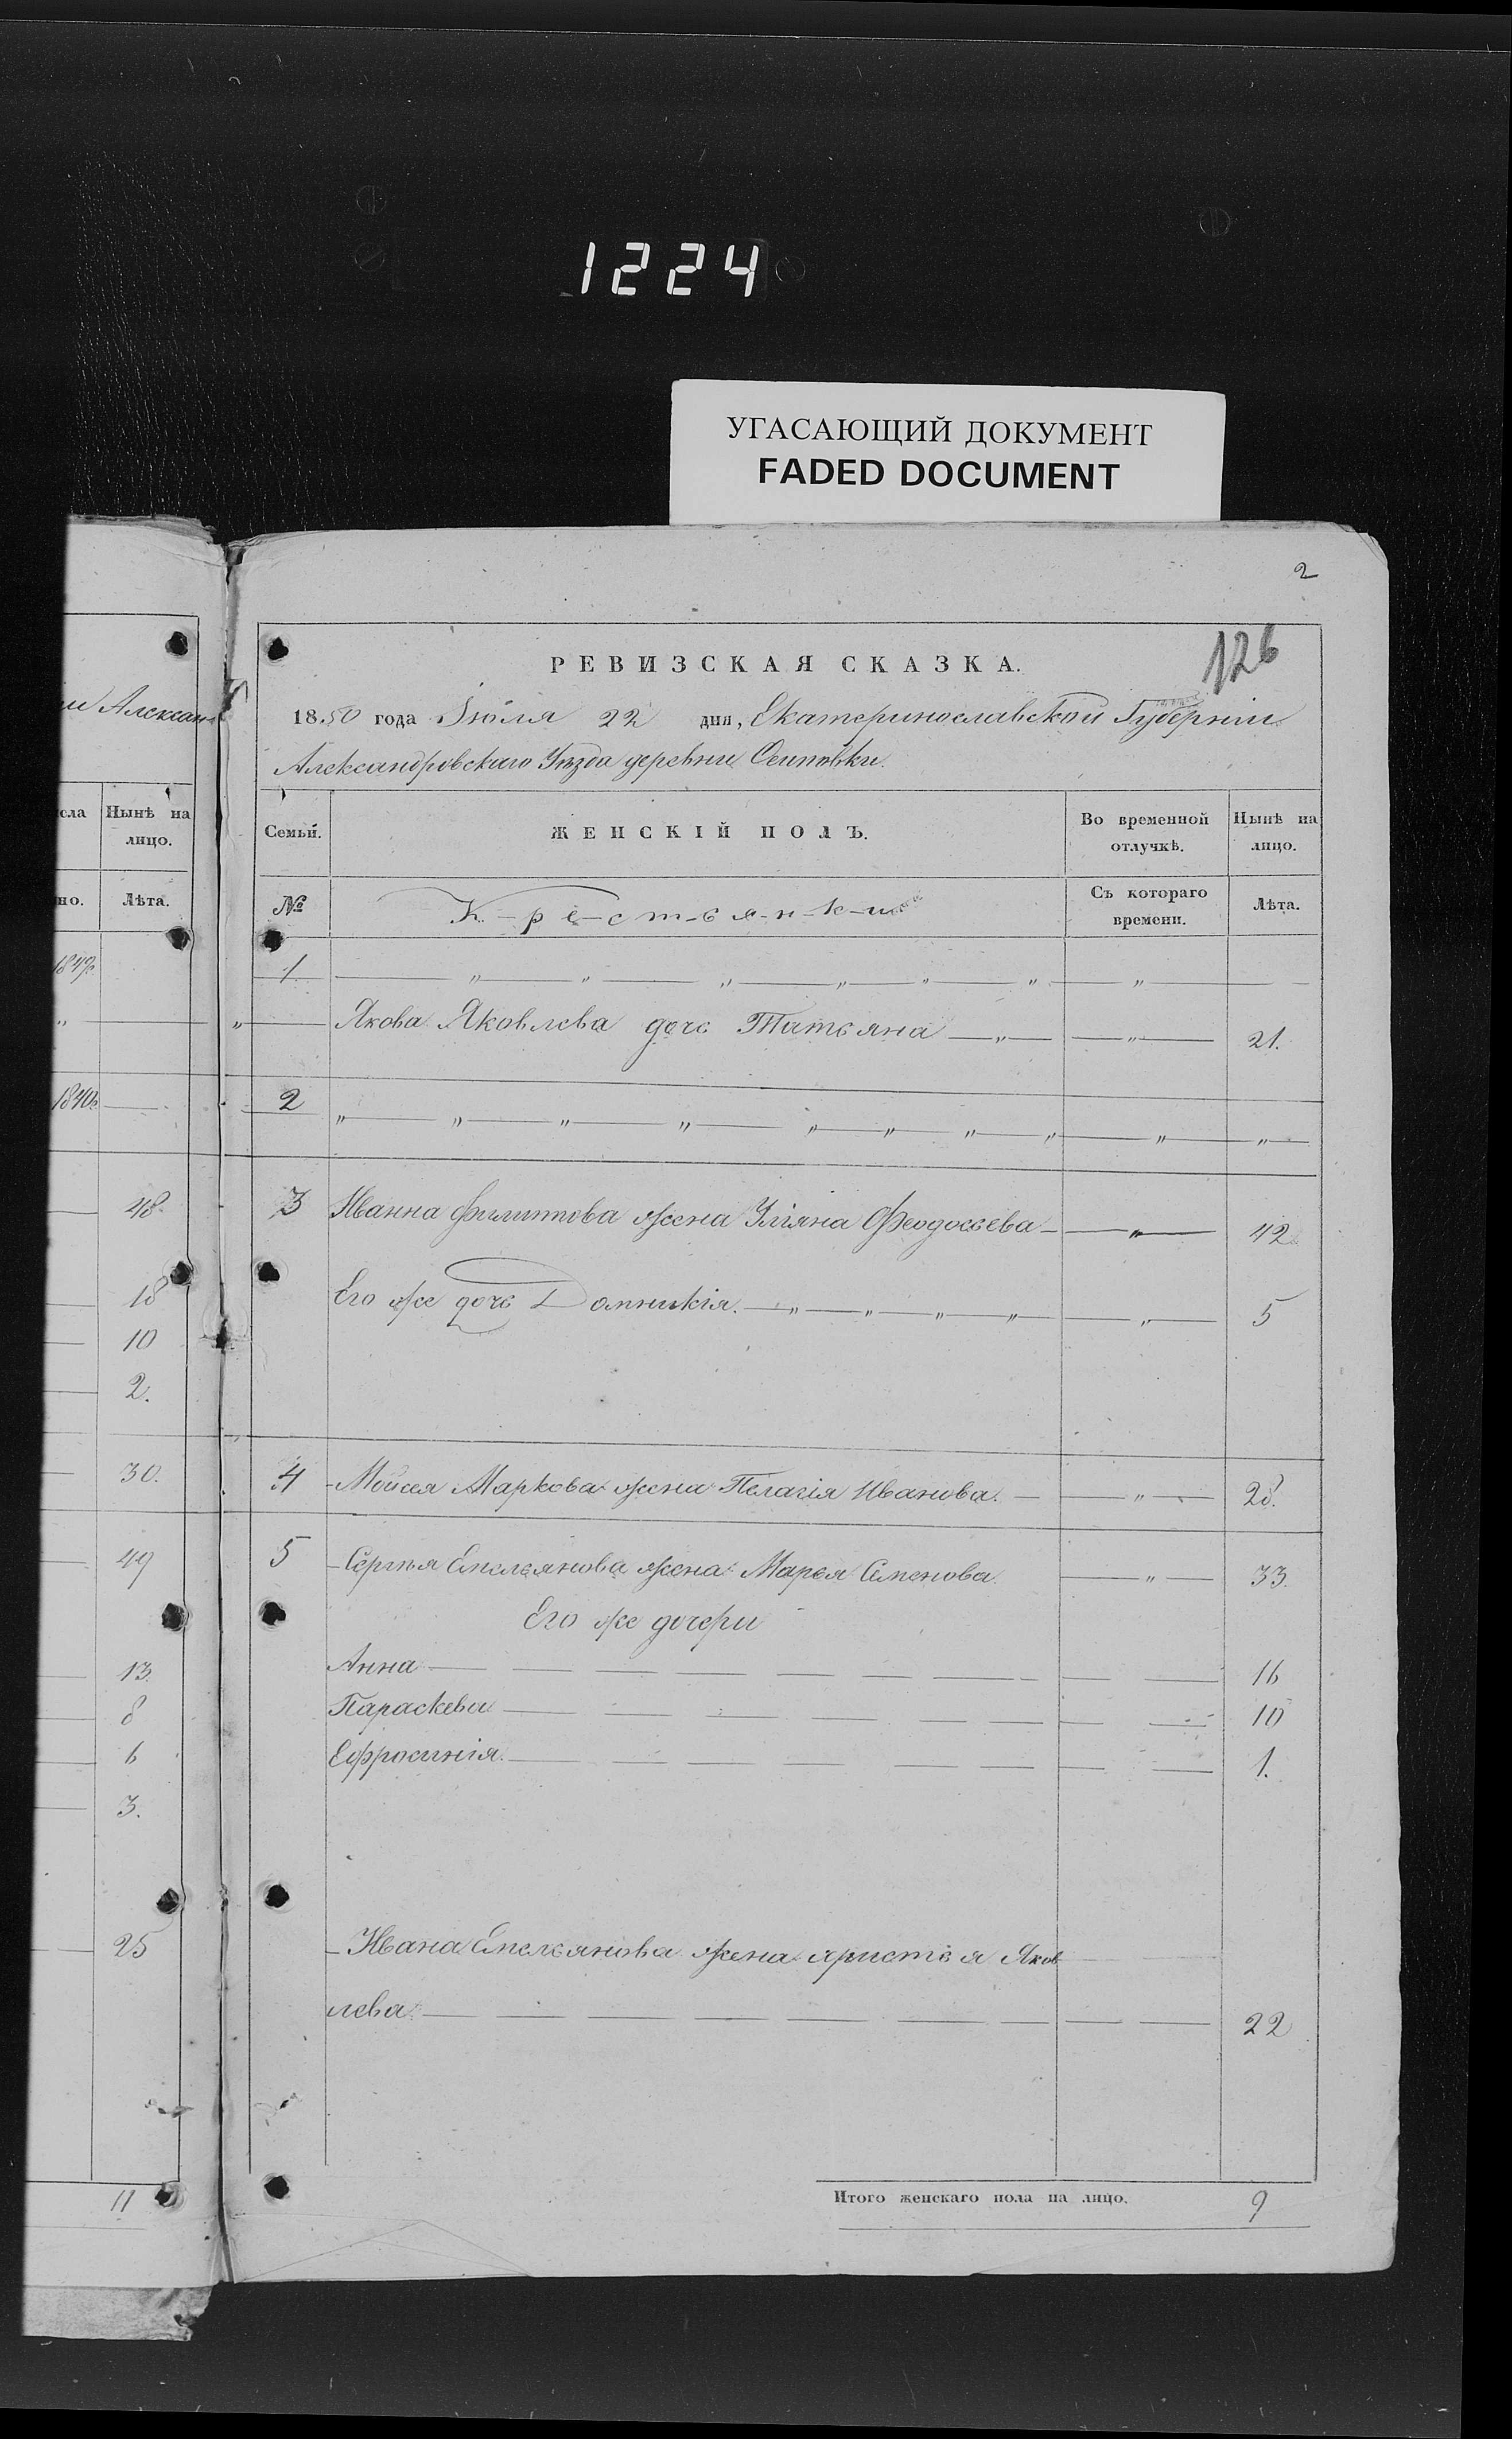 1224
УГАСАЮЩИЙ ДОКУМЕНТ
FADED DOCUMENT
2
126
РЕВИЗСКАЯ СКАЗКА.
1850 года Іюля 22 дня, Екатеринославской Губерніи
Александровскаго Уѣзда деревни Осиповки.
Семьи. ЖЕНСКІЙ ПОЛЪ. Во временной отлучкѣ. Нынѣ на лицо.
№ К-р-е-с-т-ь-я-н-к-и Съ котораго времени. Лѣта.
1
Якова Яковлева дочь Татьяна — „ — — „ — 21.
2
3 Иванна Филиппова жена Уліяна Феодосьева — — „ — 42
Его же дочь Домникія. — „ — „ — „ — „ — — „ — 5
4 Мойсея Маркова жена Пелагія Иванова. — — „ — 28.
5 Сергѣя Емельянова жена Марья Семенова. — „ — 33.
Его же дочери
Анна 16
Параскева 10
Ефросинія. 1.
Ивана Емельянова жена христья Яков
лева 22
Итого женскаго пола на лицо. 9
и Алексан
сла Нынѣ на лицо.
но. Лѣта.
1849
1840
48
18
10
2.
30.
49
13.
8
6
3.
25
11